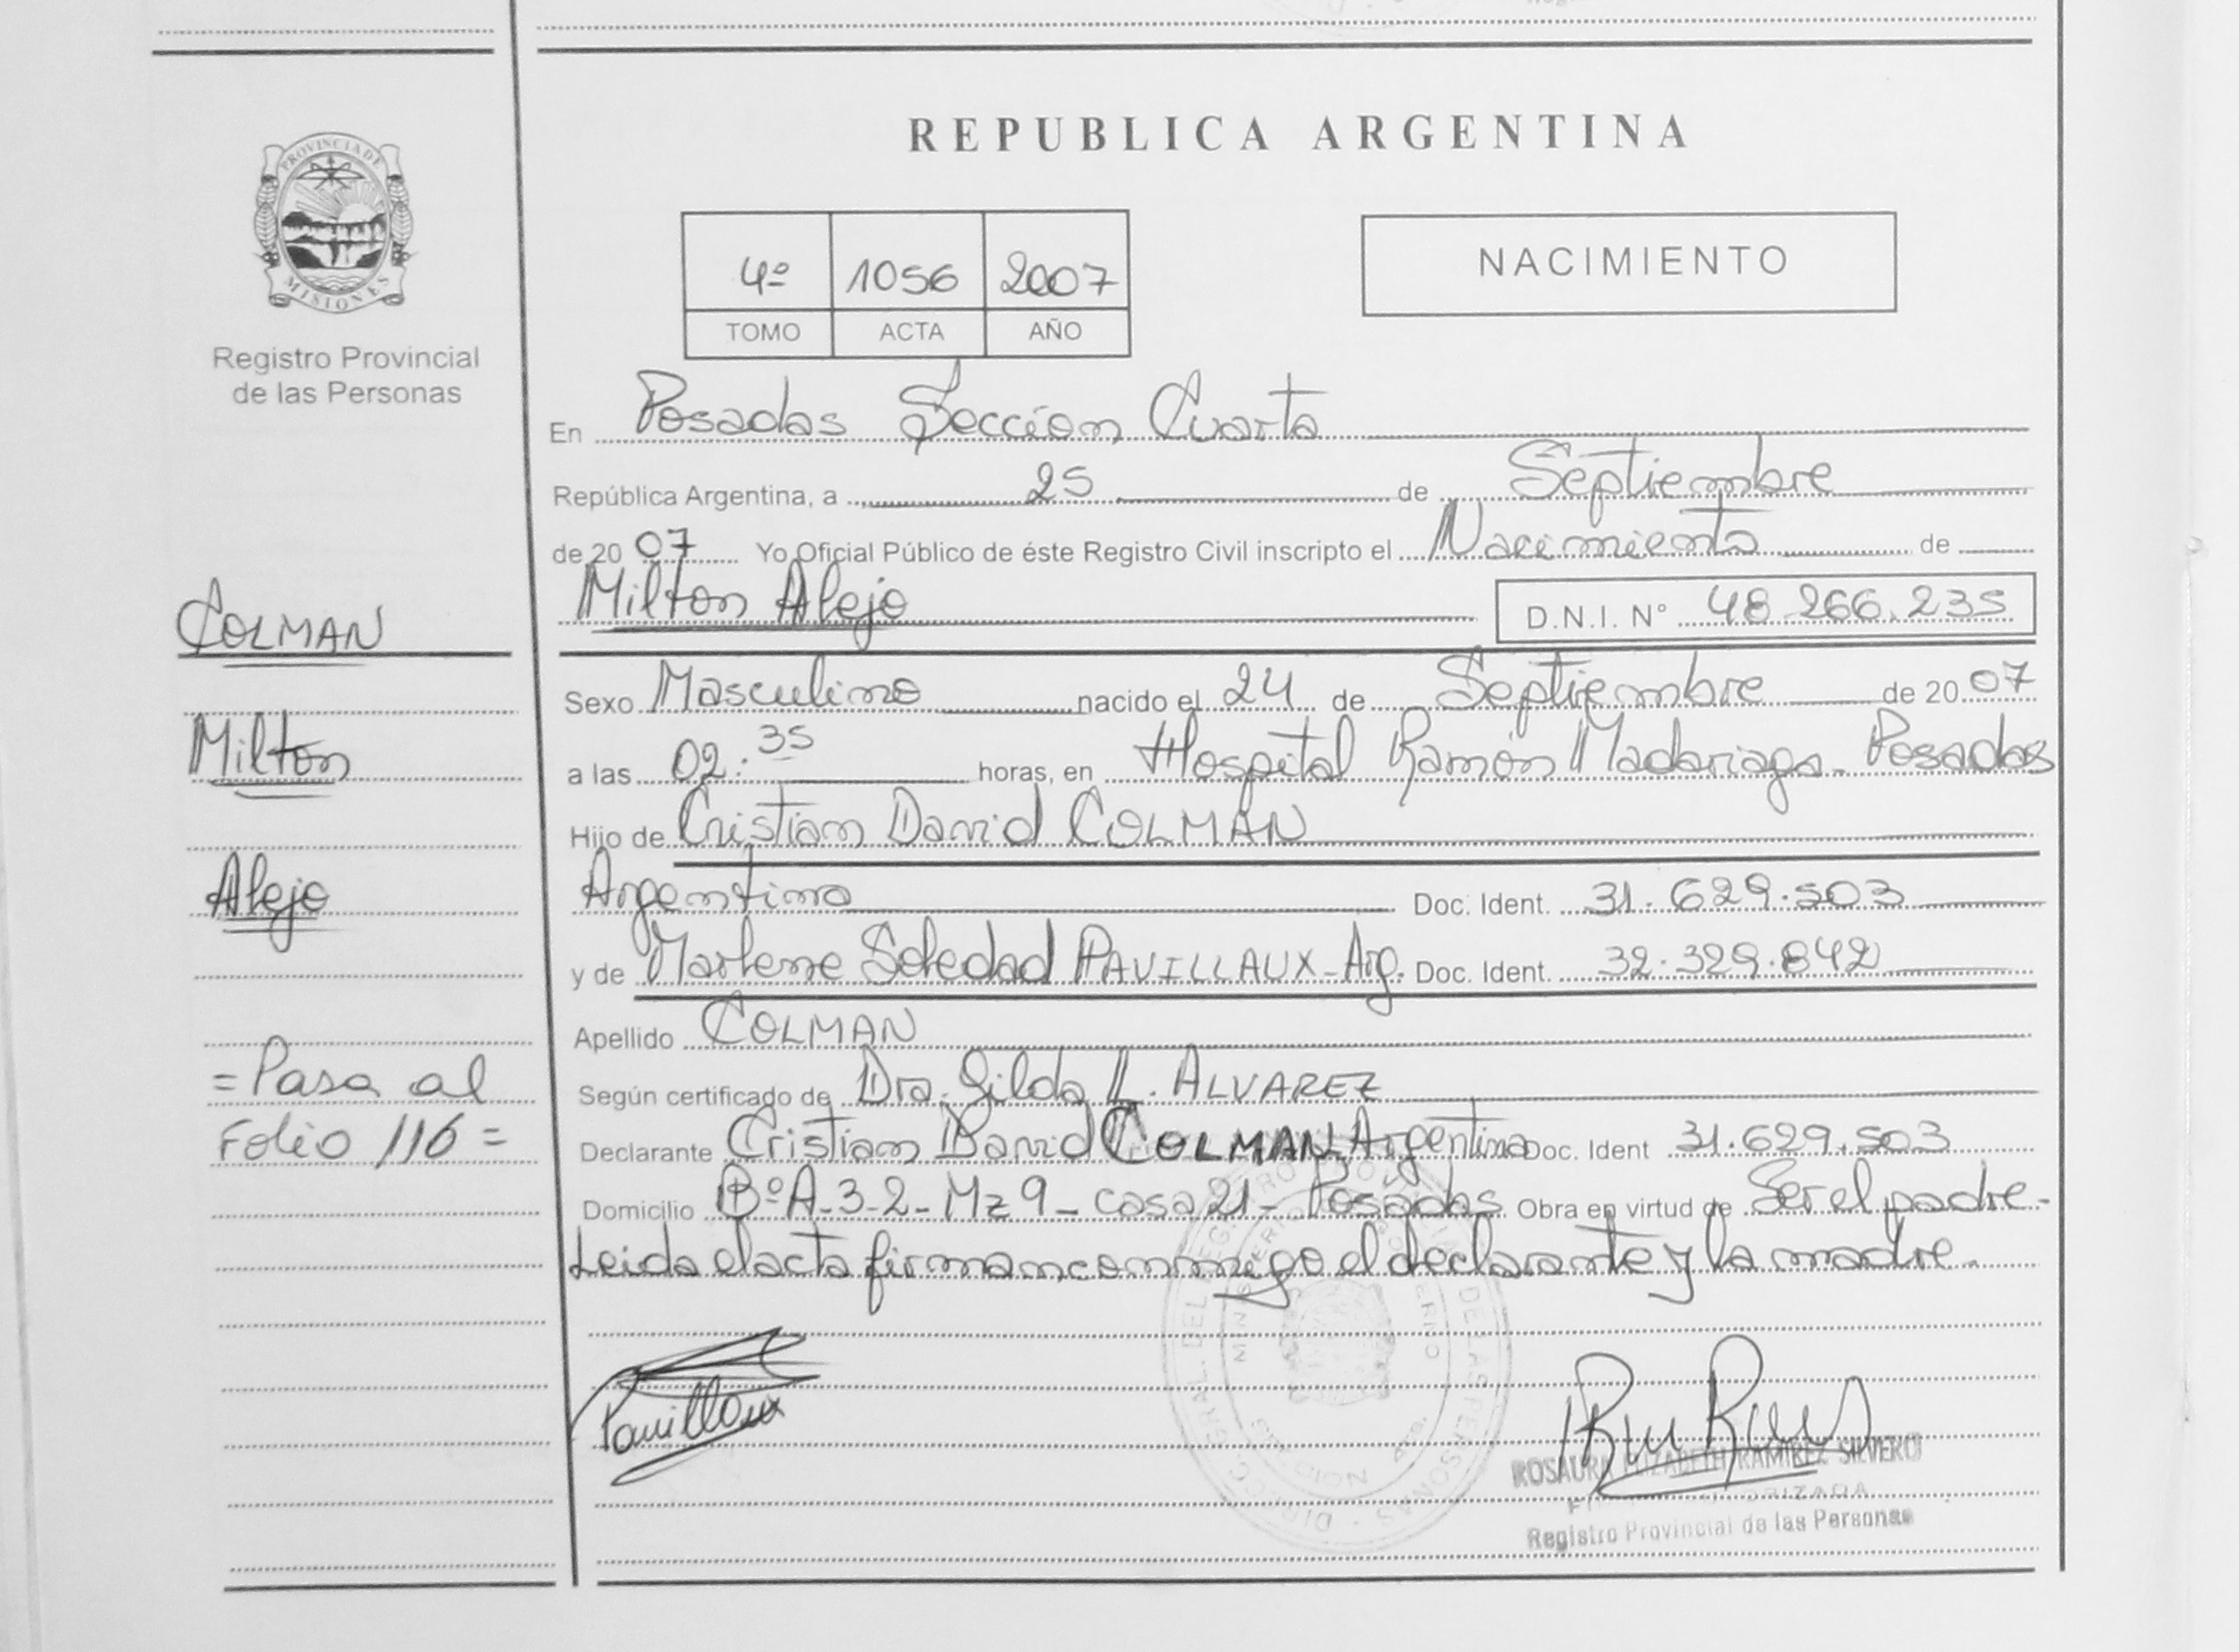 PROVINCIA DE
MISIONES
Registro Provincial
de las Personas
COLMAN
Milton
Alejo
= Pasa al
Folio 116 =
REPUBLICA ARGENTINA
4º 1056 2007
TOMO ACTA AÑO
NACIMIENTO
En Posadas Sección Cuarta
República Argentina, a 25 de Septiembre
de 2007 Yo Oficial Público de éste Registro Civil inscripto el Nacimiento de
Milton Alejo D.N.I. Nº 48.266.235
Sexo Masculino nacido el 24 de Septiembre de 2007
a las 02:35 horas, en Hospital Ramón Madariaga - Posadas
Hijo de Cristian David COLMAN
Argentino Doc. Ident. 31.629.503
y de Marlene Soledad PAVILLAUX - Arg. Doc. Ident. 32.329.842
Apellido COLMAN
Según certificado de Dra. Gilda L. ALVAREZ
Declarante Cristian David COLMAN Argentina Doc. Ident 31.629.503
Domicilio Bº A-3-2- Mz 9 - casa 21 - Posadas Obra en virtud de Ser el padre -
Leida el acta firman conmigo el declarante y la madre.
Pavillaux
ROSAURA ELIZABETH RAMIREZ SILVERO
Registro Provincial de las Personas